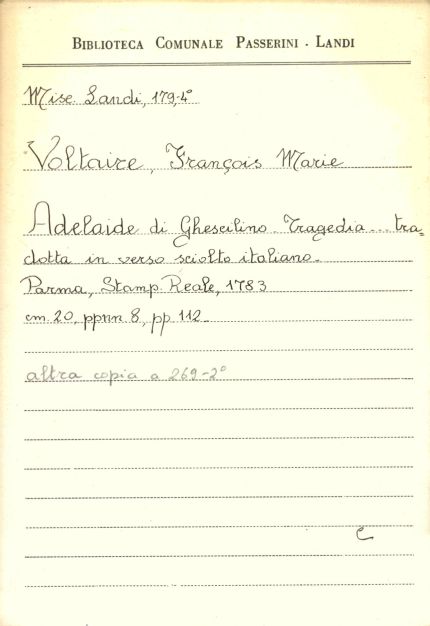 BIBLIOTECA COMUNALE PASSERINI - LANDI
Misc. Landi, 179,4°
Voltaire, François Marie
Adelaide di Ghesclino. Tragedia... tra=
dotta in verso sciolto italiano.
Parma, Stamp. Reale, 1783
cm. 20, ppnn 8, pp. 112.
altra copia a 269-2°
C